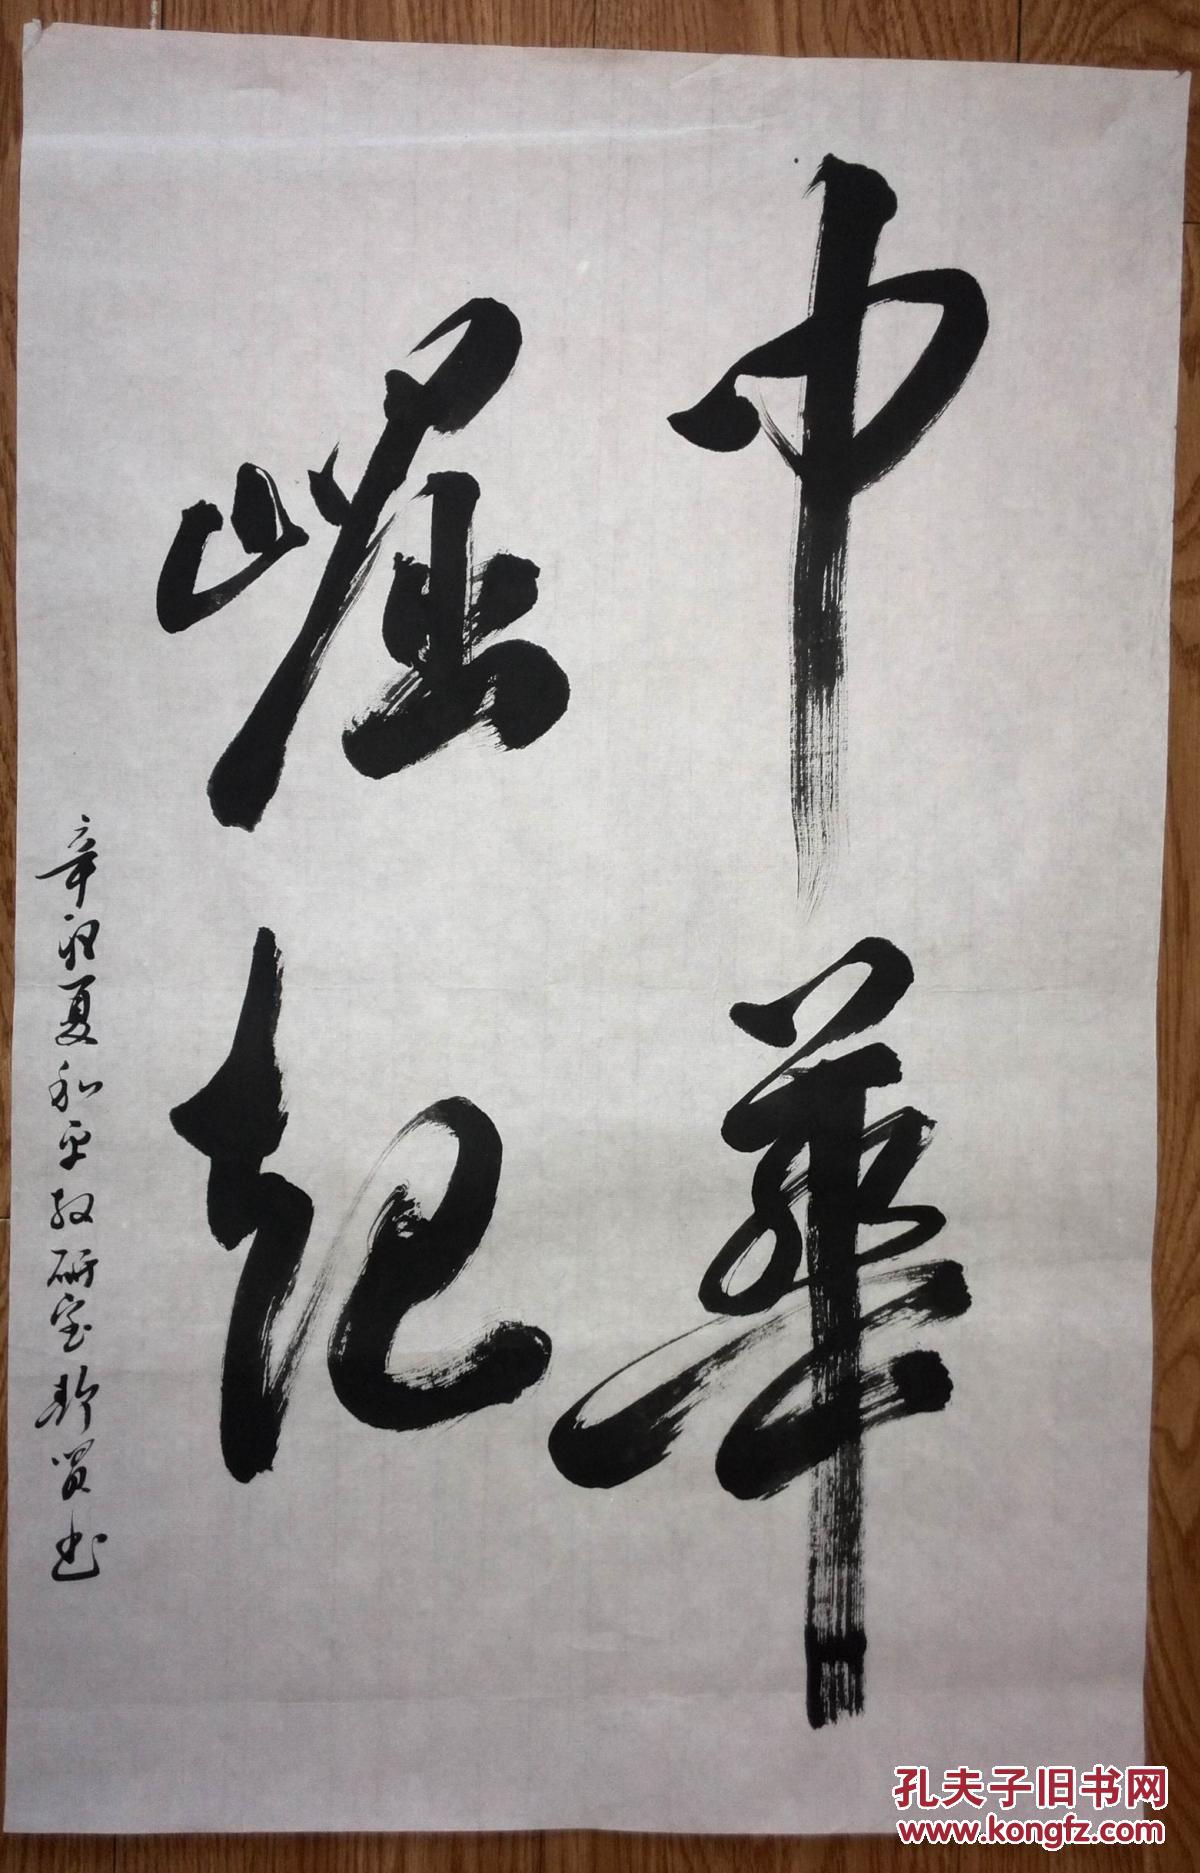 中華
崛起
辛卯夏和平教研室 書
孔夫子旧书网
www.kongfz.com